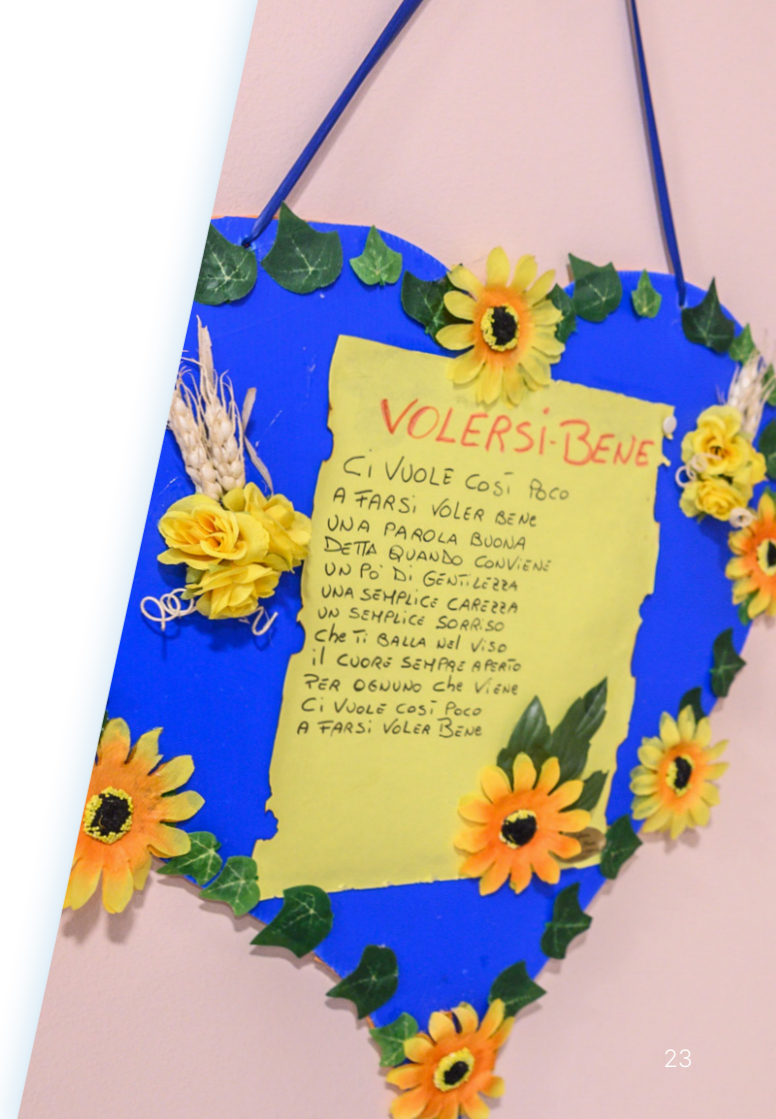 VOLERSI-BENE
Ci VUOLE COSÌ POCO
A FARSI VOLER BENE
UNA PAROLA BUONA
DETTA QUANDO CONVIENE
UN PO' DI GENTILEZZA
UNA SEMPLICE CAREZZA
UN SEMPLICE SORRISO
Che Ti BALLA Nel Viso
il CUORE SEMPRE APERTO
PER OGNUNO Che VIENE
Ci VUOLE COSÌ POCO
A FARSI VOLER BENE
23